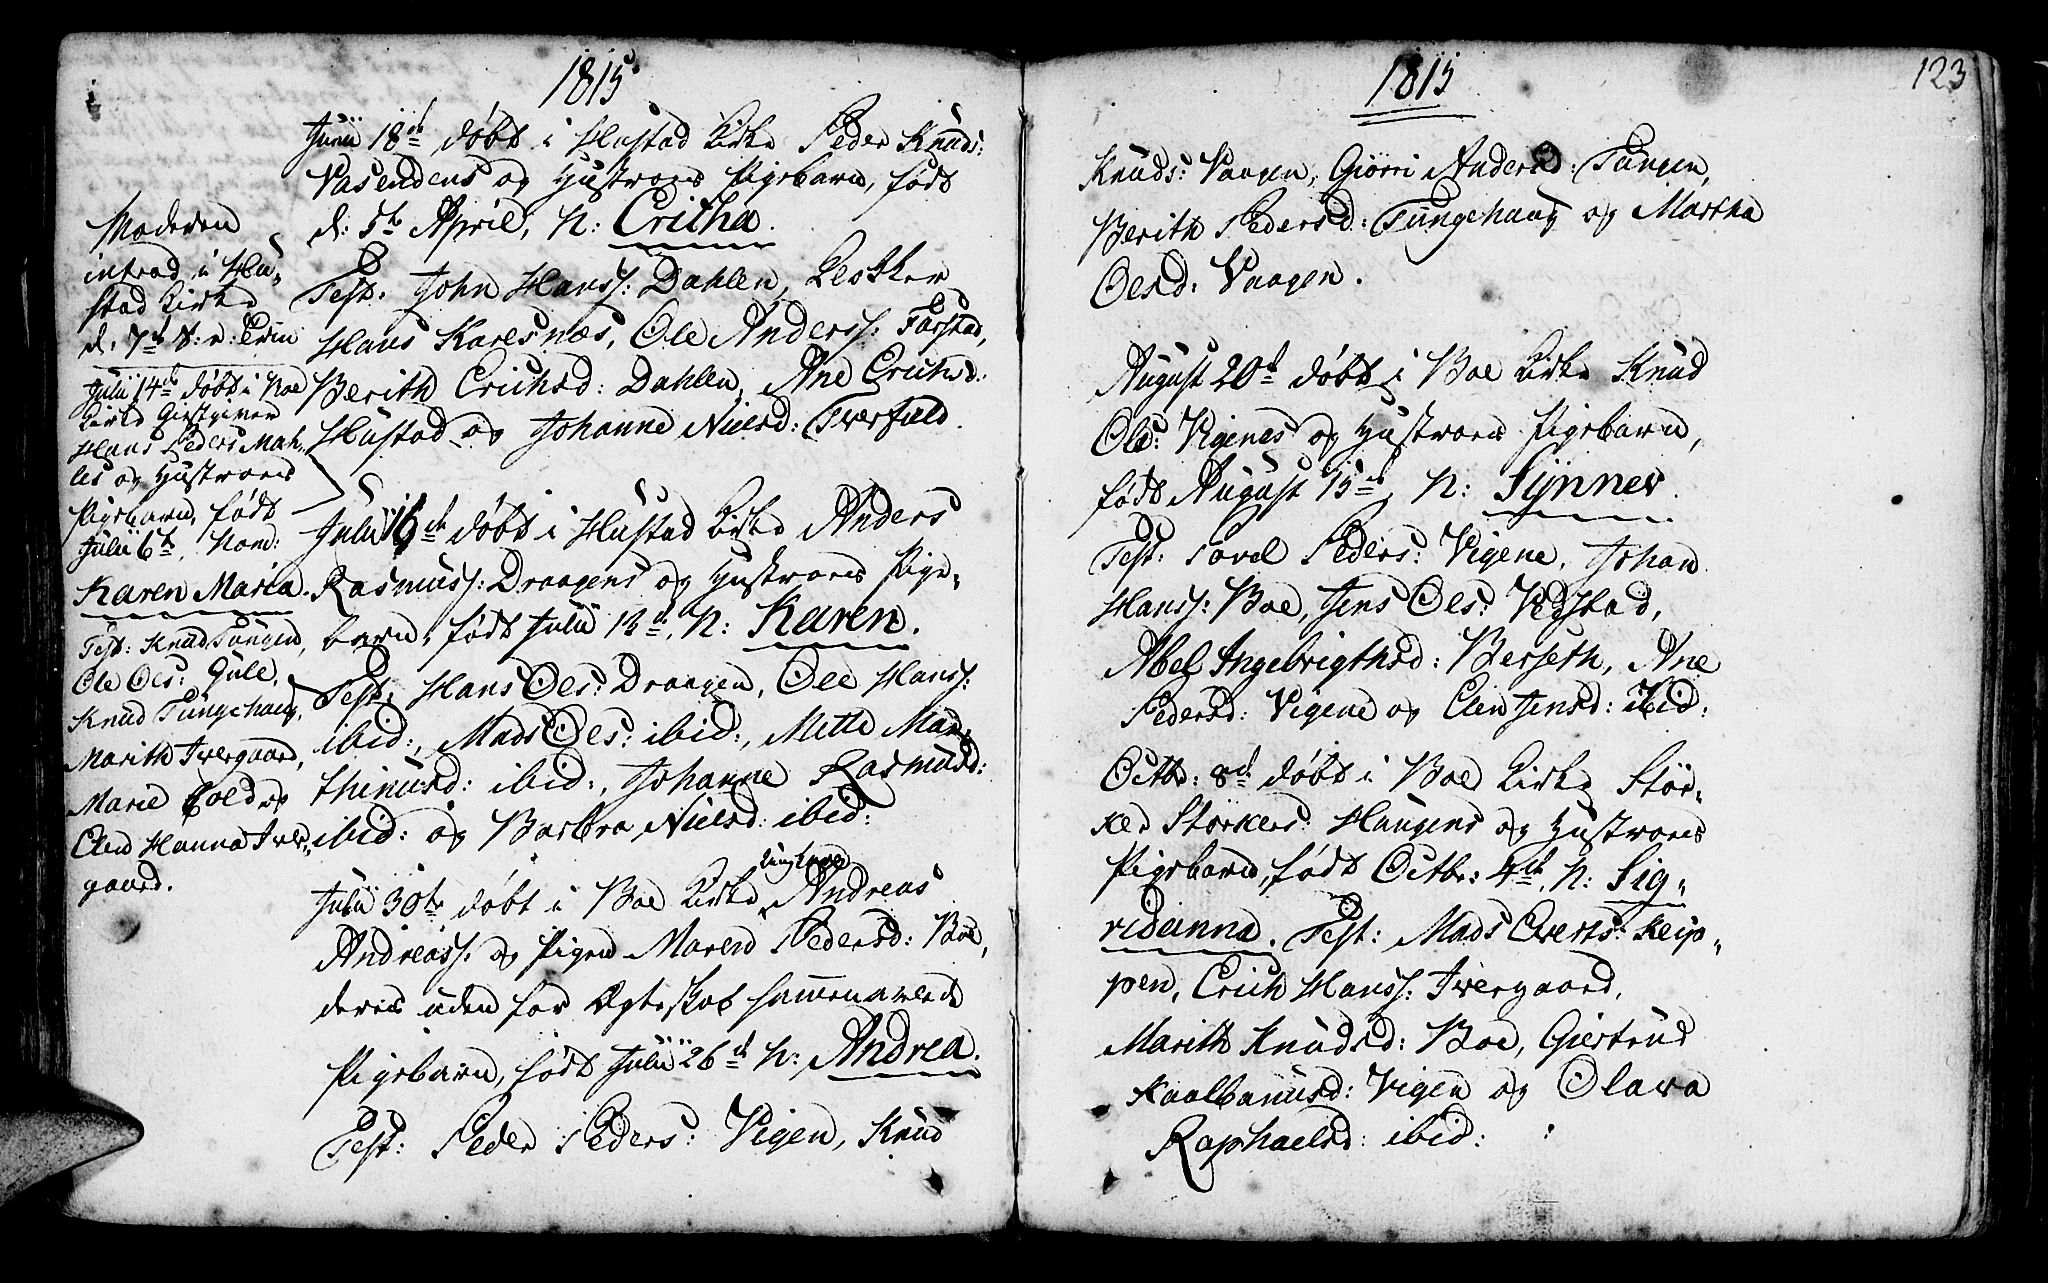 1815
Junii 18de døbt i Hustad Kirke Peder Knuds:
Vasendens og Hustroes Pigebarn, født
d: 5te April, N: Eritha.
Test: John Hanss: Dahlen, Klokker
Hans Karesnæs, Ole Anderss: Farstad,
Berith Erichsd: Dahlen, Ane Erichsd:
Hustad og Johanne Nielsd: Tverfield.
Moderen
introd i Hu-
stad Kirke
d. 7de S: p: Trin
Julii 14de døbt i Boe
Kirke Giestgiver
Hans Peders Mah-
les og Hustroes
Pigebarn, født
Julii 6te, nom:
Karen Maria.
Test: Knud Tungen,
Ole Oes: Gule,
Knud Tungehaug,
Marith Ivergaard,
Marie Told og
Elen Hanna Iver-
gaard.
Julii 16de døbt i Hustad Kirke Anders
Rasmuss: Draagens og Hustroes Pige-
barn, født Julii 12te, N: Karen.
Test: Hans Oes: Draagen, Ole Hanss:
ibid:, Mads Oes: ibid:, Mette Mar-
thinusd: ibid:, Johanne Rasmusd:
ibid: og Barbro Nielsd: ibid:
Julii 30te døbt i Boe Kirke Ungkarl Andreas
Andreass: og Pigen Maren Pedersd: Boe,
deres uden for Ægteskab sammenavlede
Pigebarn, født Julii 26de N: Andrea.
Test: Peder Peders: Vigen, Knud
1815
123
Knuds: Vaagen, Giørri Andersd: Tungen,
Berith Pedersd: Tungehaug og Martha
Oesd: Vaagen.
August 20de døbt i Boe Kirke Knud
Ole: Vigenes og Hustroes Pigebarn,
født August 15de, N: Synnev.
Test: Povel Peders: Vigene, Johan
Hanss: Boe, Jens Oes: Vestad,
Abel Ingebrigthsd: Berseth, Ane
Pedersd: Vigene og Elen Jensd: ibid:
Octbr: 8de døbt i Boe Kirke Stør-
ker Størkers: Haugens og Hustroes
Pigebarn, født Octbr: 4de, N: Sig-
ridanna. Test: Mads Everts: Keip-
pen, Erich Hanss: Ivergaard,
Marith Knudsd: Boe, Giertrud
Kaalbanusd: Vigen og Olava
Raphaelsd: ibid: